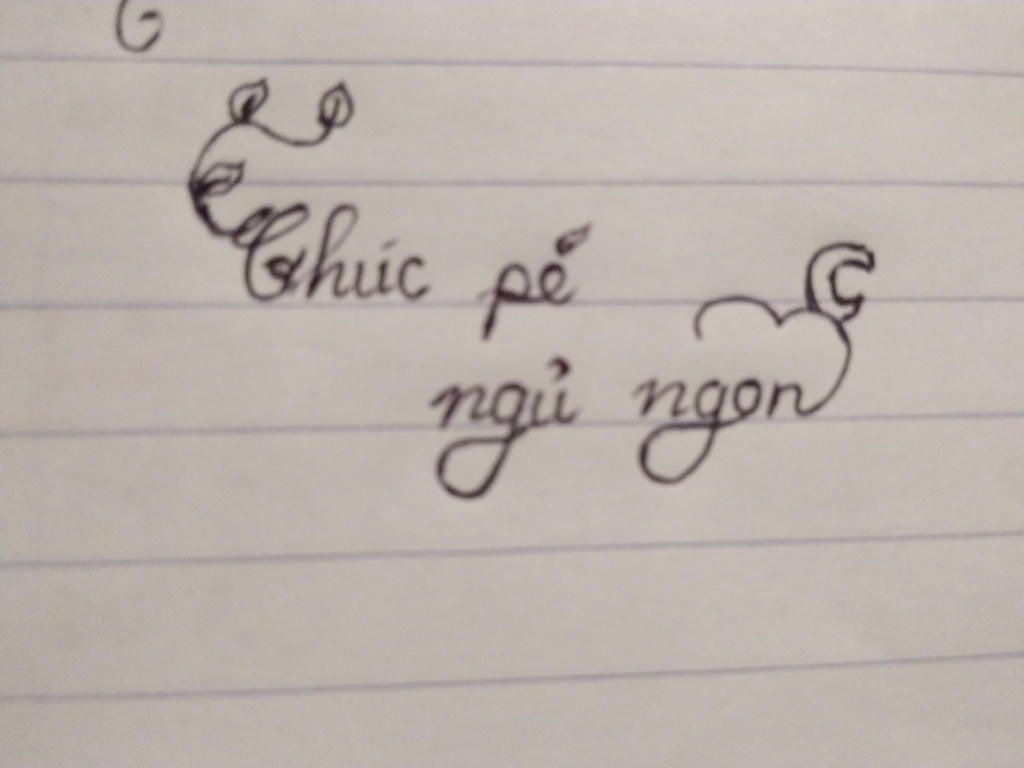 Chúc pé
ngủ ngon